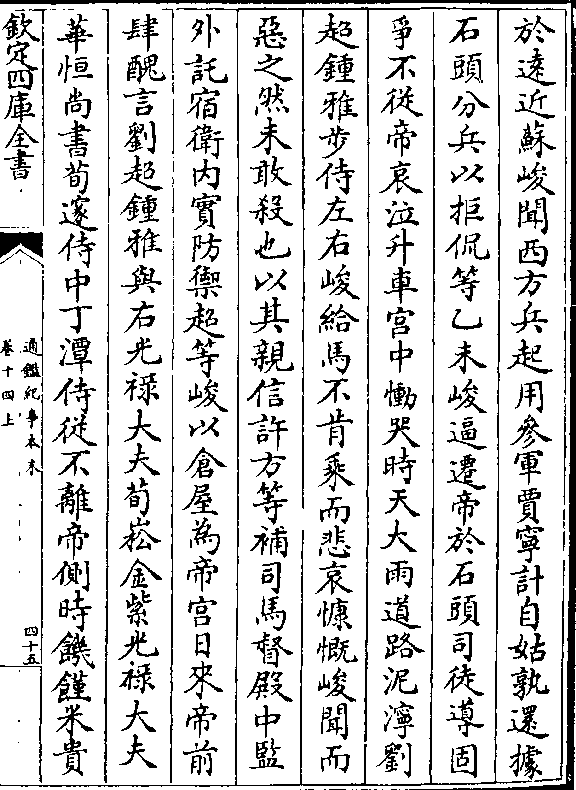 於遠近蘇峻聞西方兵起用參軍賈寧計自姑孰還據
石頭分兵以拒侃等乙未峻逼遷帝於石頭司徒導固
爭不從帝哀泣升車宮中慟哭時天大雨道路泥濘劉
超鍾雅步侍左右峻給馬不肯乘而悲哀慷慨峻聞而
惡之然未敢殺也以其親信許方等補司馬督殿中監
外託宿衛內實防禦超等峻以倉屋為帝宮日來帝前
肆醜言劉超鍾雅與右光祿大夫荀崧金紫光祿大夫
華恒尚書荀邃侍中丁潭侍從不離帝側時饑饉米貴
欽定四庫全書
通鑑紀事本末
卷十四上
四十五